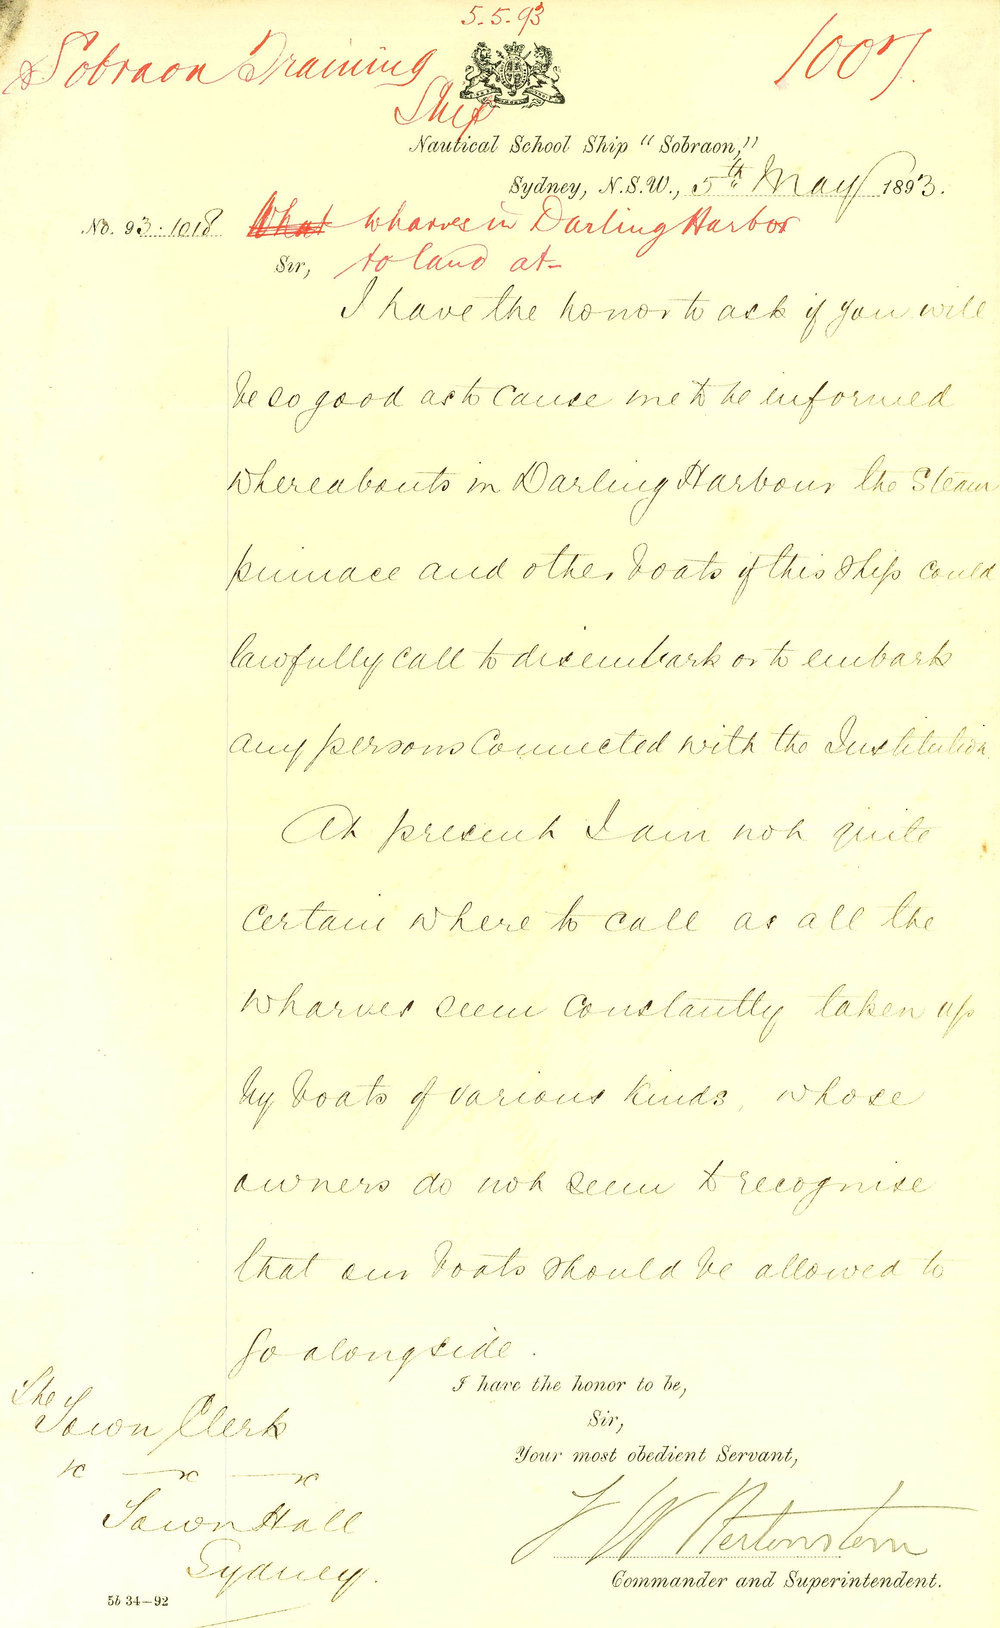 5.5.93
Sobraon Training
Ship
1007.
Nautical School Ship "Sobraon,"
Sydney, N.S.W., 5th May 1893.
No. 93.1018
What wharves in Darling Harbor
to land at-
Sir,
I have the honor to ask if you will
be so good as to cause me to be informed
whereabouts in Darling Harbour the Steam
pinnace and other boats of this ship could
lawfully call to disembark or to embark
any persons connected with the Institution
At present I am not quite
certain where to call as all the
wharves seem constantly taken up
by boats of various kinds, whose
owners do not seem to recognise
that our boats should be allowed to
go alongside.
I have the honor to be,
Sir,
Your most obedient Servant,
Commander and Superintendent.
The
Town Clerk
Town Hall
Sydney.
5b 34—92